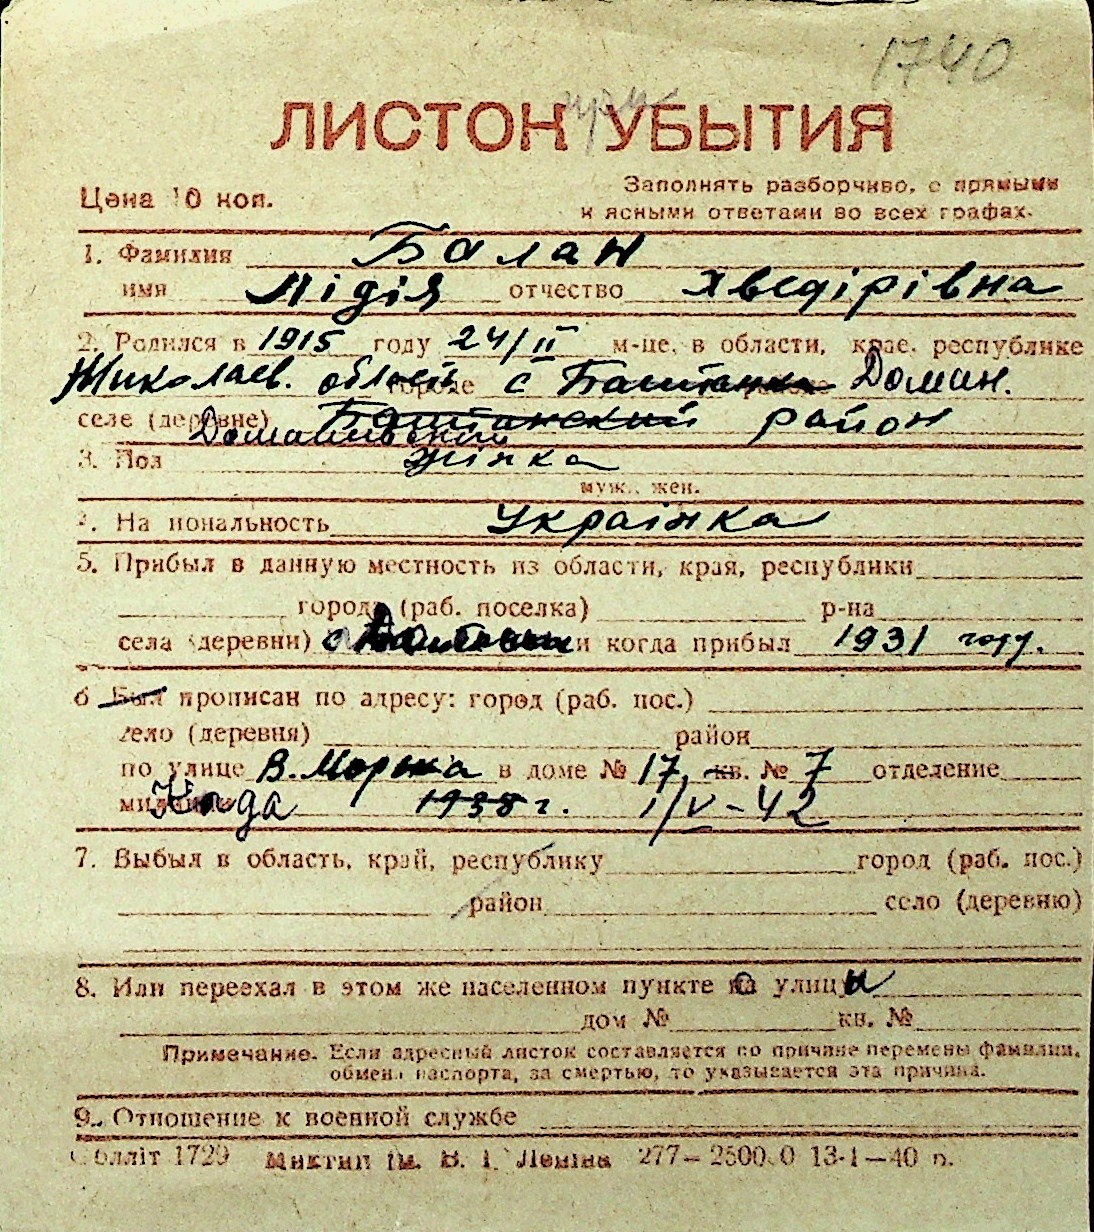 1740
ЛИСТОК при УБЫТИЯ
Цена 10 коп.
Заполнять разборчиво, с прямыми
и ясными ответами во всех графах.
1. Фамилия Балан
имя Лідія отчество Хведірівна
2. Родился в 1915 году 24/II м-це, в области, крае, республике
Миколаев. области городе с Баштанка Доман.
селе (деревне) Баштанский район
Доманивский
3. Пол жінка
муж., жен.
4. Национальность Українка
5. Прибыл в данную местность из области, края, республики
города (раб. поселка) р-на
села (деревни) с и когда прибыл 1931 году.
6 Был прописан по адресу: город (раб. пос.)
село (деревня) район
по улице В. Морська в доме № 17, кв. № 7 отделение
милиции 1938 г. 1/V-42
7. Выбыл в область, край, республику город (раб. пос.)
район село (деревню)
8. Или переехал в этом же населенном пункте на улицу
дом № кв. №
Примечание. Если адресный листок составляется по причине перемены фамилии,
обмена паспорта, за смертью, то указывается эта причина.
9. Отношение к военной службе
Облліт 1729 Миктип ім. В. І. Леніна 277— 25000 13-1—40 р.